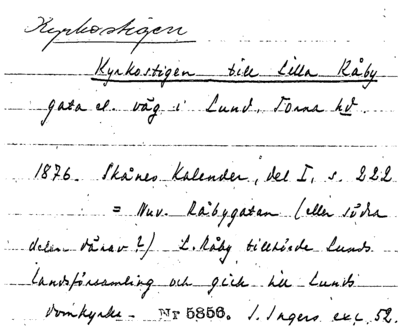 Kyrkostigen
Kyrkostigen till Lilla Råby
gata el. väg i Lund, Torna hd.
1876. Skånes Kalender, del I, s. 222
= Nuv. Råbygatan (eller södra
delen därav?) L. Råby tillhörde Lunds
landsförsamling och gick till Lunds
domkyrka - Nr 5856. I. Ingers exc. 52.